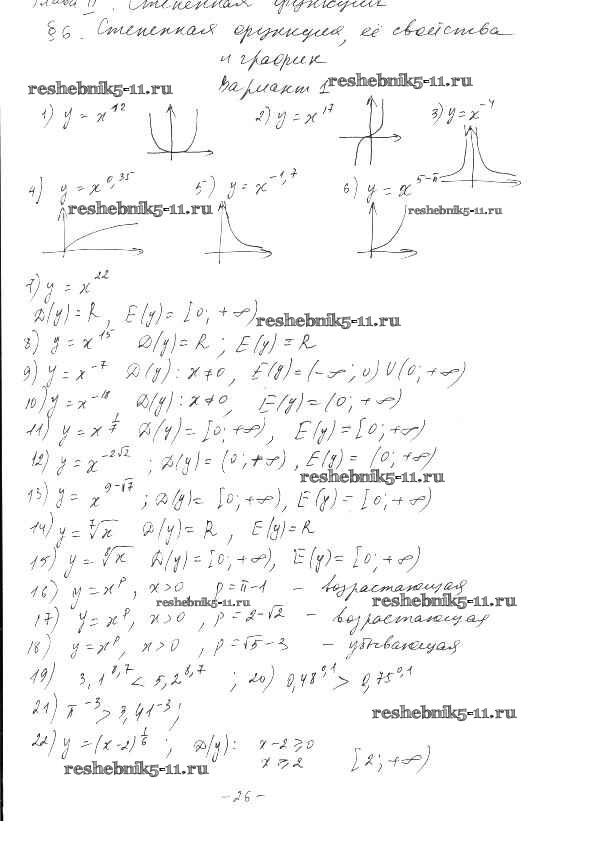 Глава II. Степенная функция
§ 6. Степенная функция, её свойства
и график
reshebnik5-11.ru Вариант 1 reshebnik5-11.ru
1) y = x^12 2) y = x^17 3) y = x^-4
4) y = x^0,35 5) y = x^-1,7 6) y = x^5-π
reshebnik5-11.ru reshebnik5-11.ru
7) y = x^22
D(y) = R, E(y) = [0; +∞) reshebnik5-11.ru
8) y = x^15 D(y) = R; E(y) = R
9) y = x^-7 D(y): x≠0, E(y) = (-∞; 0) U (0; +∞)
10) y = x^-18 D(y): x≠0, E(y) = (0; +∞)
11) y = x^1/7 D(y) = [0; +∞), E(y) = [0; +∞)
12) y = x^-2√2 ; D(y) = (0; +∞), E(y) = (0; +∞)
reshebnik5-11.ru
13) y = x^9-√7 ; D(y) = [0; +∞), E(y) = [0; +∞)
14) y = ⁷√x D(y) = R, E(y) = R
15) y = ⁸√x D(y) = [0; +∞), E(y) = [0; +∞)
16) y = x^p, x>0 p = π-1 – возрастающая
reshebnik5-11.ru reshebnik5-11.ru
17) y = x^p, x>0, p = 2-√2 – возрастающая
18) y = x^p, x>0, p = √5-3 – убывающая
19) 3,1^8,7 < 5,2^8,7 ; 20) 0,48^0,1 > 0,75^0,1
21) π^-3 > 3,41^-3;
reshebnik5-11.ru
22) y = (x-2)^1/6 ; D(y): x-2≥0
reshebnik5-11.ru x≥2 [2; +∞)
-26-